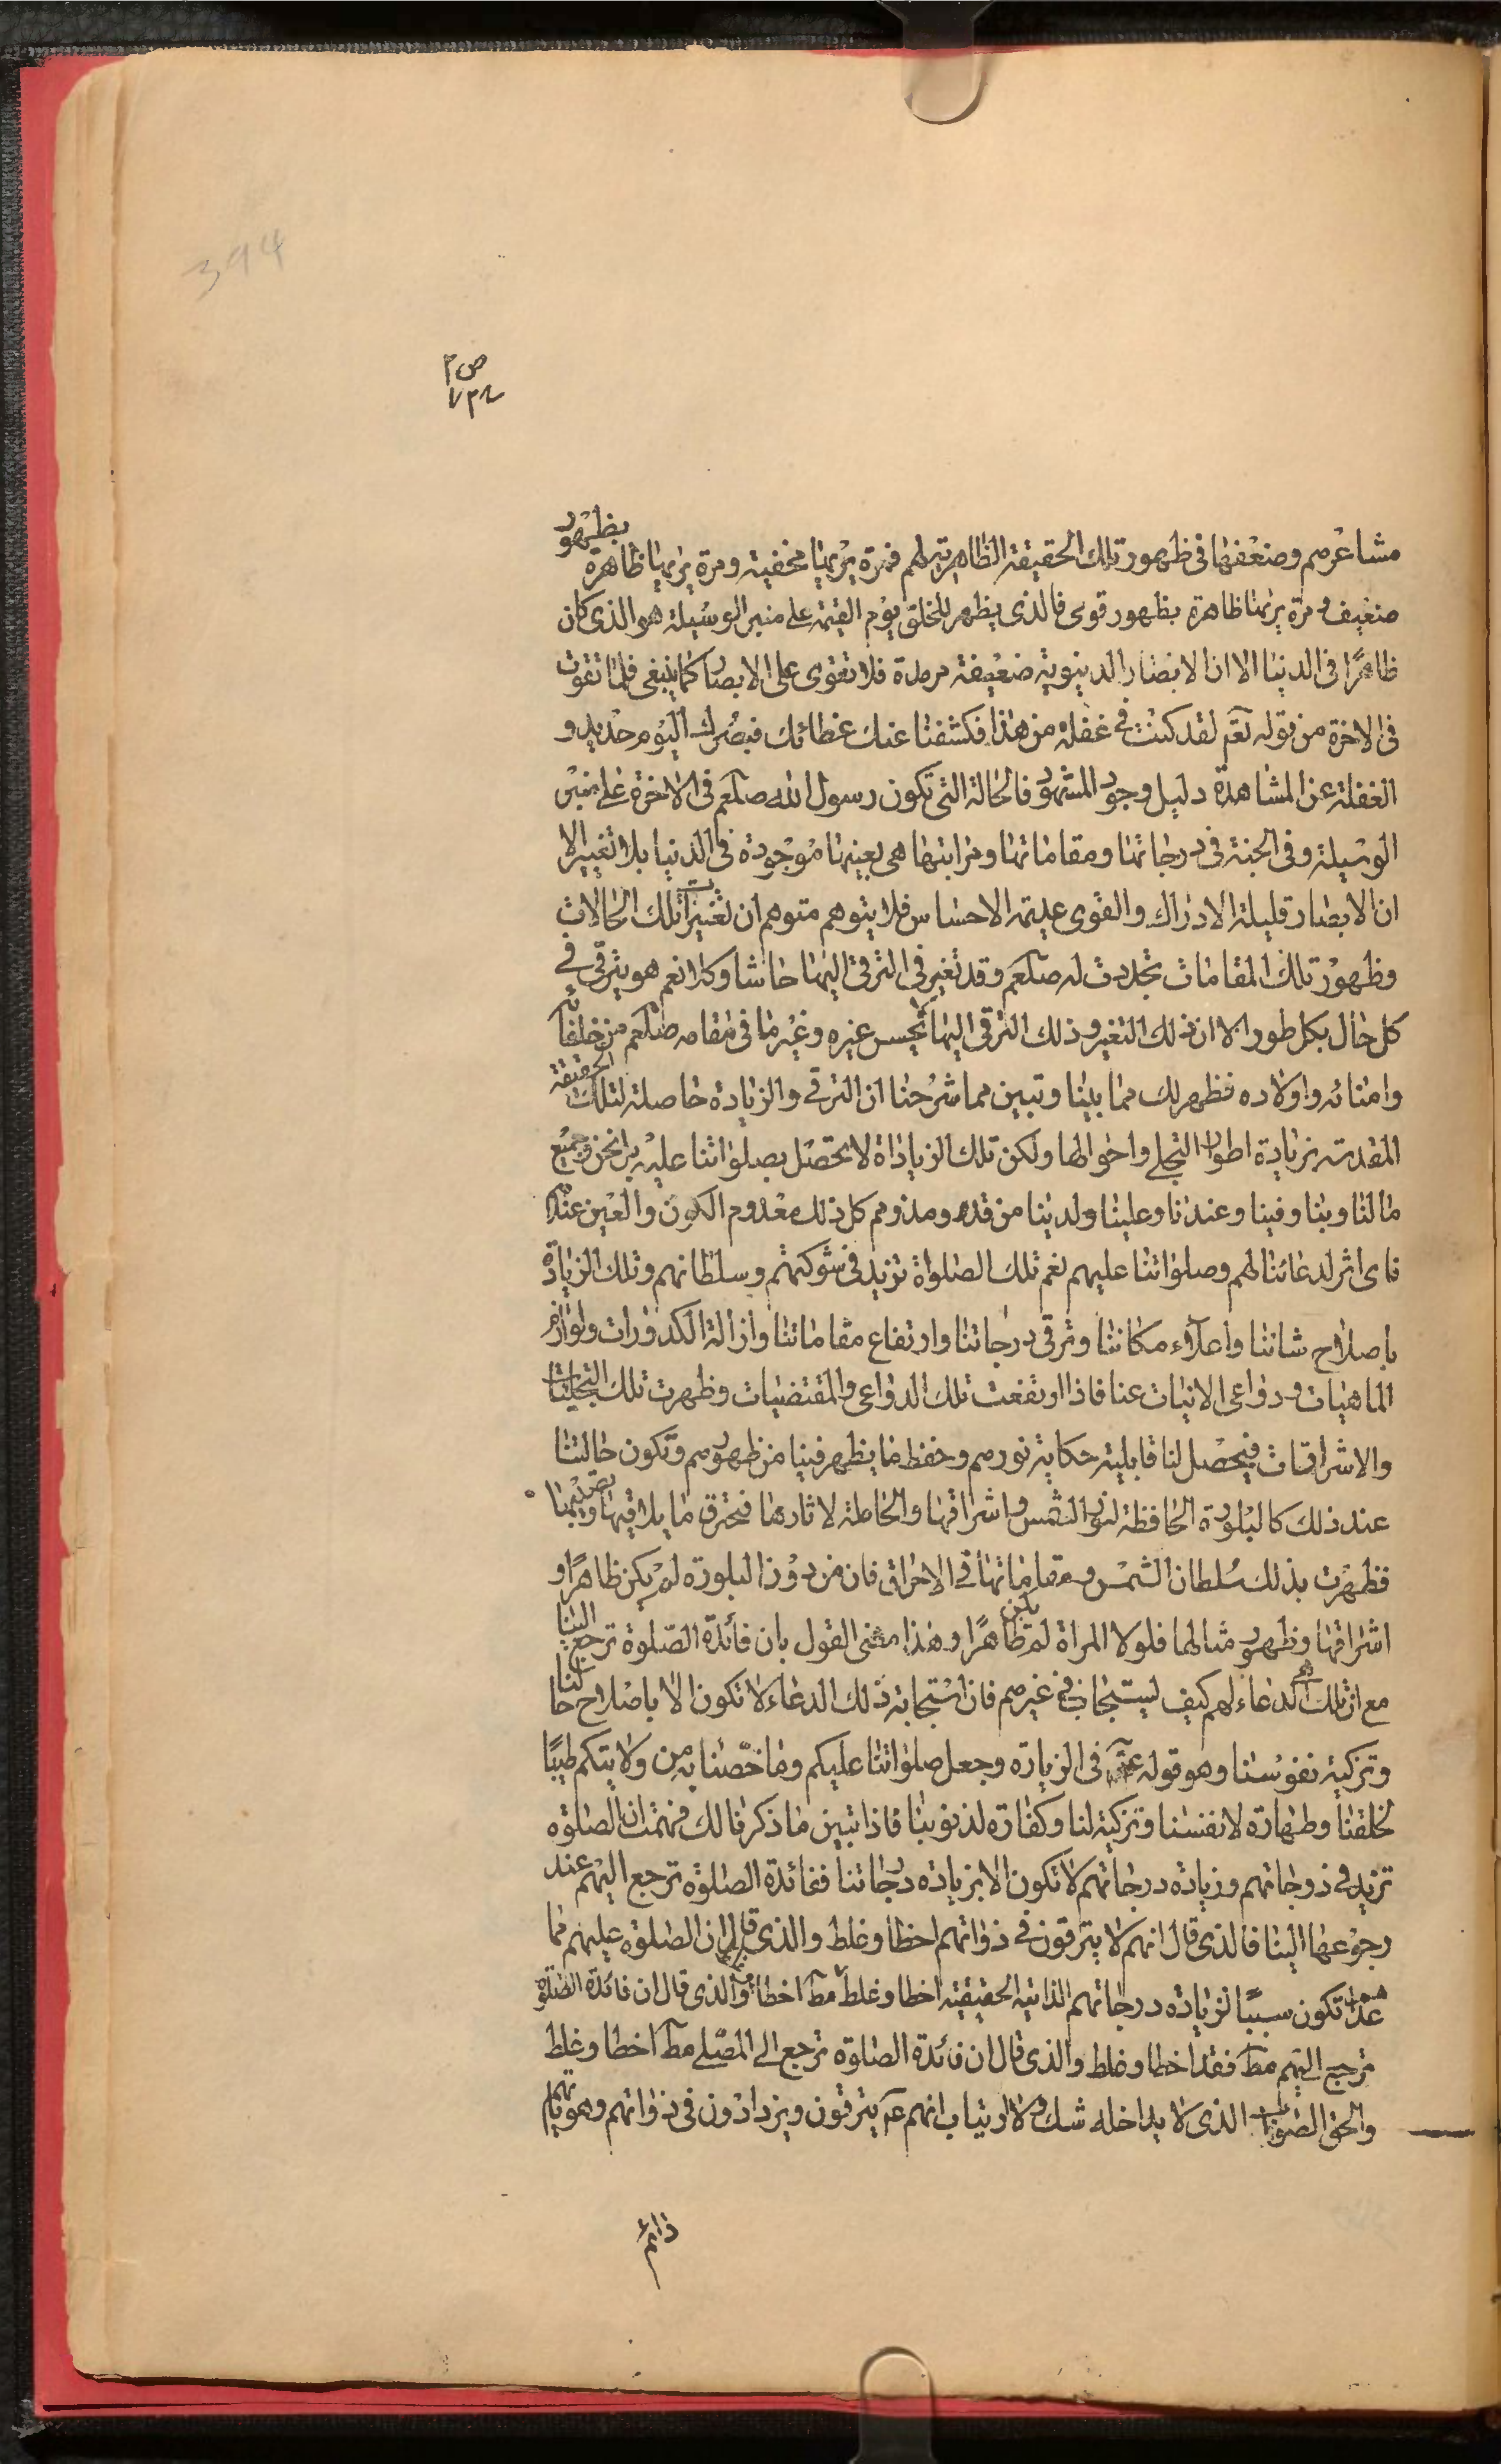 394
مشاعرهم وضعفها فى ظهور تلك الحقيقة الظاهرة لهم فمرة يريها مخفية ومرة يريها ظاهرة بظهور
ضعيف ومرة يريها ظاهرة بظهور قوى فالذى يظهر للخلق يوم القيمة على منبر الوسيلة هو الذى كان
ظاهرًا فى الدنيا الا ان الابصار الدنيوية ضعيفة مرمدة فلا تقوى على الابصار كما ينبغى فلما تقوت
فى الاخرة من قوله تعم لقد كنت فى غفلة من هذا فكشفنا عنك غطائك فبصرك اليوم حديد و
الغفلة عن المشاهدة دليل وجود المشهود فالحالة التى تكون رسول الله صلعم فى الاخرة على منبر
الوسيلة وفى الجنة فى درجاتها ومقاماتها ومراتبها هى بعينها موجودة فى الدنيا بلا تغيير الا
ان الابصار قليلة الادراك والقوى عديمة الاحساس فلا يتوهم متوهم ان تغييرات تلك الحالات
وظهور تلك المقامات تجددت له صلعم وقد تغير فى الترقى اليها حاشا وكلا نعم هو يترقى فى
كل حال بكل طور الا ان ذلك التغير وذلك الترقى اليها لا يحس غيره وغير ما فى مقامه صلعم من خلفائه
وامنائه واولاده فظهر لك مما بينا وتبين مما شرحنا ان الترقى والزيادة حاصلة لتلك الحقيقة
المقدسة بزيادة اطوار التجلى واحوالها ولكن تلك الزياداة لا يحصل بصلواتنا عليه بل نحن وجميع
مالنا وبنا وفينا وعندنا وعلينا ولدينا من قدهم ومذومهم كل ذلك معدوم الكون والعين عندهم
فاى اثر لدعائنا لهم وصلواتنا عليهم نعم تلك الصلواة تزيد فى شوكتهم وسلطانهم وتلك الزيادة
باصلاح شاننا واعلاء مكاننا وترقى درجاتنا وارتفاع مقاماتنا وازالة الكدورات ولوازم
الماهيات ودواعى الانيات عنا فاذا ارتفعت تلك الدواعى والمقتضيات وظهرت تلك التجليات
والاشراقات فيحصل لنا قابلية حكاية نورهم وحفظ ما يظهر فينا من ظهورهم وتكون حالتنا
عند ذلك كالبلورة الحافظة لنور الشمس واشراقها والحاملة لاثارها فتحرق ما يلاقيها ويضمها
فظهرت بذلك سلطان الشمس ومقاماتها فى الاحراق فان من دون البلورة لم يكن ظاهرًا و
اشراقها وظهور مثالها فلولا المراة لم يكن ظاهرًا وهذا معنى القول بان فائدة الصلوة ترجع الينا
مع ان تلك الدعاء لهم كيف ليستجاب فى غيرهم فان استجابة ذلك الدعاء لا تكون الا باصلاح حالنا
وتزكية نفوسنا وهو قوله ع فى الزيارة وجعل صلواتنا عليكم وما خصنا به من ولايتكم طيبًا
لخلقنا وطهارة لانفسنا وتزكية لنا وكفارة لذنوبنا فاذا تبين ما ذكرنا لك فهمت ان الصلوة
تزيد فى درجاتهم وزيادة درجاتهم لا تكون الا بزيادة درجاتنا ففائدة الصلوة ترجع اليهم عند
رجوعها الينا فالذى قال انهم لا يترقون فى ذواتهم اخطا وغلط والذى قال ان الصلوة عليهم مما
تكون سببًا لزيادة درجاتهم الذاتية الحقيقية اخطا وغلط مط اخطا والذى قال ان فائدة الصلوة
ترجع اليهم مط فقد اخطا وغلط والذى قال ان فائدة الصلوة ترجع الى المصلى مط اخطا وغلط
والحق الصواب الذى لا يداخله شك ولا ارتياب انهم ع يترقون ويزدادون فى ذواتهم وهوياتهم
دائم